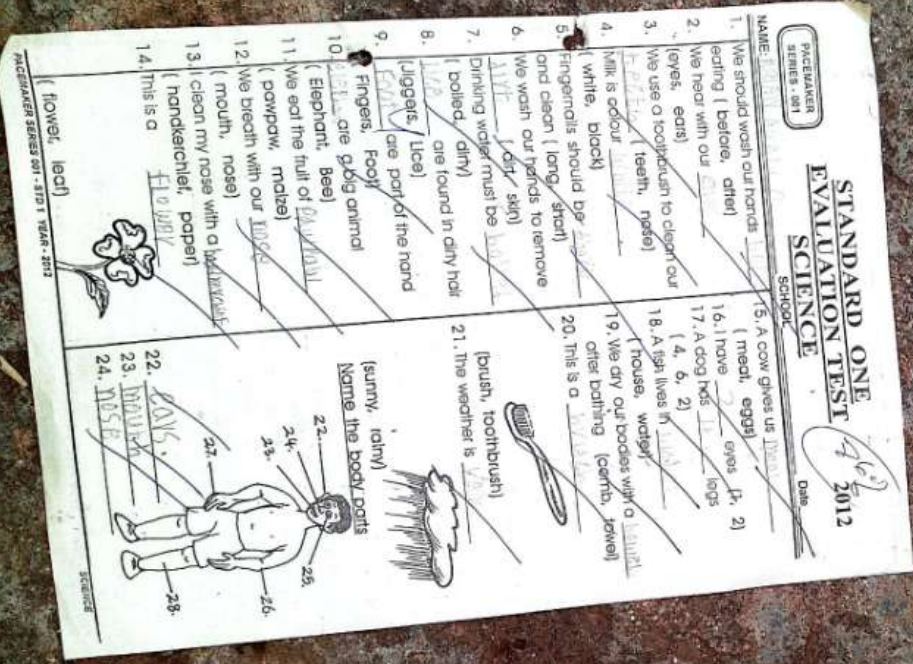 PACEMAKER
SERIES - 001
STANDARD ONE
EVALUATION TEST 2012
SCIENCE
NAME:
SCHOOL
Date
1. We should wash our hands
eating ( before, after)
2. We hear with our
(eyes, ears)
3. We use a toothbrush to clean our
teeth ( teeth, nose)
4. Milk is colour
( white, black)
5. Fingernails should be
and clean ( long, short)
6. We wash our hands to remove
dirt ( dirt, skin)
7. Drinking water must be
( boiled, dirty)
8. are found in dirty hair
(Jiggers, Lice)
9. are part of the hand
( Fingers, Foot)
10. are a big animal
( Elephant, Bee)
11. We eat the fruit of
( pawpaw, maize)
12. We breath with our nose
( mouth, nose)
13. I clean my nose with a
( handkerchief, paper)
14. This is a
( flower, leaf)
15. A cow gives us meat
( meat, eggs)
16. I have 2 eyes (1, 2)
17. A dog has legs
( 4, 6, 2)
18. A fish lives in
( house, water)
19. We dry our bodies with a towel
after bathing (comb, towel)
20. This is a
(brush, toothbrush)
21. The weather is
(sunny, rainy)
Name the body parts
22.
24.
23.
27.
25.
26.
28.
22. ears.
23. mouth
24. nose
PACEMAKER SERIES 001 - STD 1 YEAR - 2012
SCIENCE